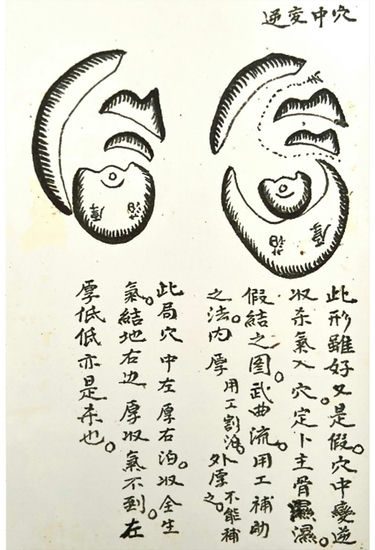 穴中变逆
厚 泊
厚 泊
此形雖好又是假。穴中變逆
收杀氣入穴。定卜主骨濕濕。
假結之图武曲流用工補助
之法内厚用工割泊。外厚不能補之。
此局穴中左厚右泊。收全生
氣。結地右边厚收氣不到。左
厚低低亦是杀也。